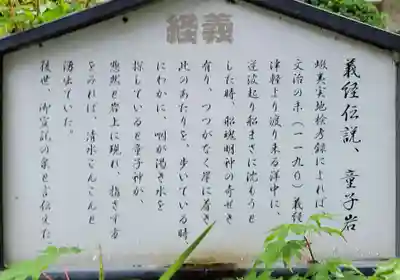 義経
義経伝説、童子岩
蝦夷実地検考録によれば、
文治の末(一一九〇)義経
津軽より渡り来る洋中に、
逆波起り船まさに沈もうと
した時、船魂明神の奇せき
有り、つつがなく岸に着き
此のあたりを、歩いている時、
にわかに、咽が渇き水を
探していると童子神が、
忽然と岩上に現れ、指さす方
をみれば、清水こんこんと
湧出ていた。
後世、御宝託の泉と言伝えた